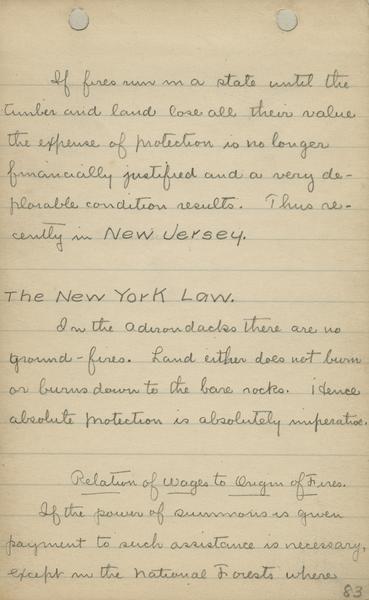 If fires run in a state until the
timber and land lose all their value
the expense of protection is no longer
financially justified and a very de-
plorable condition results. Thus re-
cently in New Jersey.
The New York Law.
In the Adirondacks there are no
ground-fires. Land either does not burn
or burns down to the bare rocks. Hence
absolute protection is absolutely imperative.
Relation of Wages to Origin of Fires.
If the power of summons is given
payment to such assistance is necessary,
except in the National Forests where
83